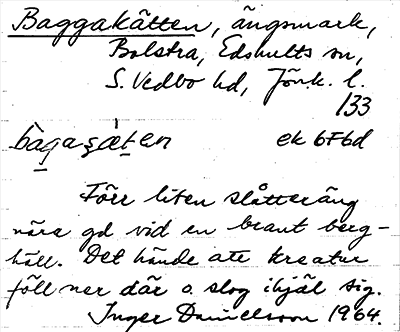 Baggakätten, ängsmark,
Bolstra, Edshults sn,
S. Vedbo hd, Jönk. l.
133
bàgaşæ̀ten ek 6F6d
Förr liten slåtteräng
nära gd vid en brant berg-
häll. Det hände att kreatur
föll ner där o. slog ihjäl sig.
Inger Danielsson 1964.